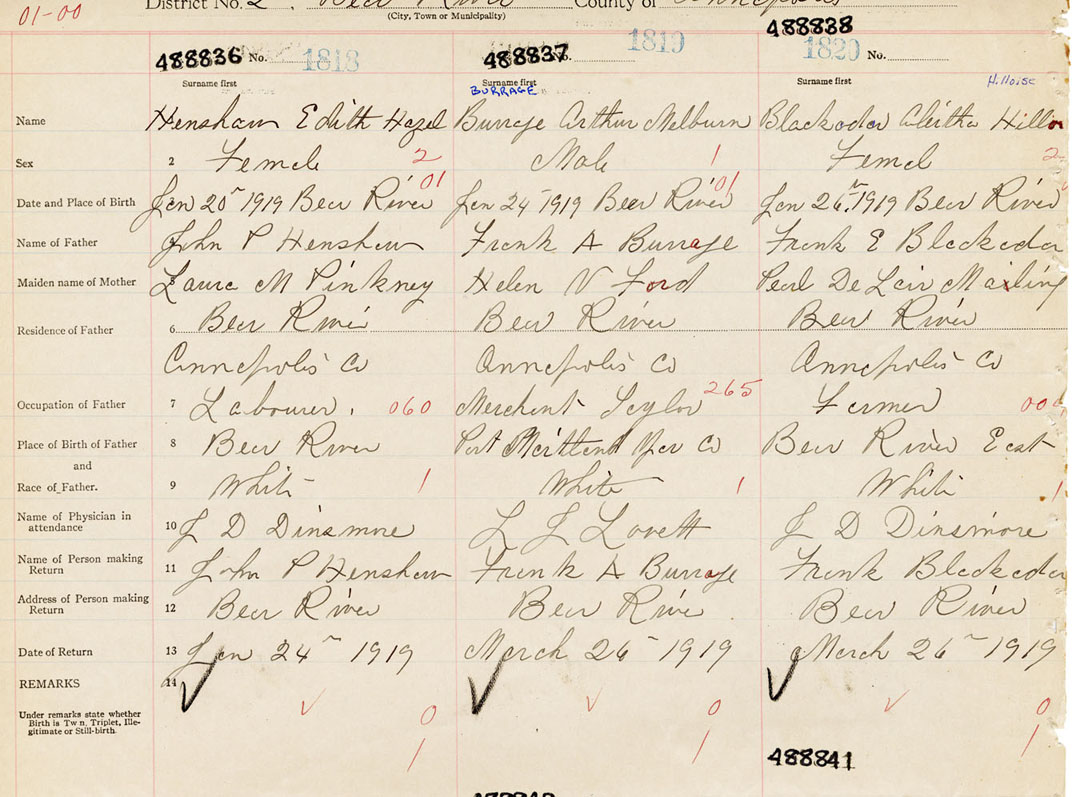 01-00
District No. 2, Bear River County of Annapolis
(City, Town or Municipality)
488836 No. 1818
488837 No. 1819
488838
1820 No.
Surname first
Surname first
Surname first
BURRAGE
Name Henshaw Edith Hazel
Burrage Arthur Melburn
Blackadar Hillo
Sex 2 Female 2
Male 1
Femal 2
01
01
Date and Place of Birth Jan 20 1919 Bear River
Jan 24 1919 Bear River
Jan 26 1919 Bear River
Name of Father John P Henshaw
Frank A Burrage
Frank E Blackadar
Maiden name of Mother Laura M Pinkney
Helen V Ford
Pearl De Lair
Residence of Father 6 Bear River
Bear River
Bear River
Annapolis Co
Annapolis Co
Annapolis Co
Occupation of Father 7 Labourer. 060
Merchant Taylor 265
Farmer 00
Place of Birth of Father 8 Bear River
Port Maitland Yar Co
Bear River East
and
Race of Father. 9 White 1
White 1
White 1
Name of Physician in
attendance 10 J D Dinsmore
L J Lovett
J D Dinsmore
Name of Person making
Return 11 John P Henshaw
Frank A Burrage
Frank Blackadar
Address of Person making
Return 12 Bear River
Bear River
Bear River
Date of Return 13 Jan 24 1919
March 26 1919
March 26 1919
REMARKS 14
Under remarks state whether
Birth is Twin, Triplet, Ille-
gitimate or Still-birth.
0
0
0
1
1
1
488841